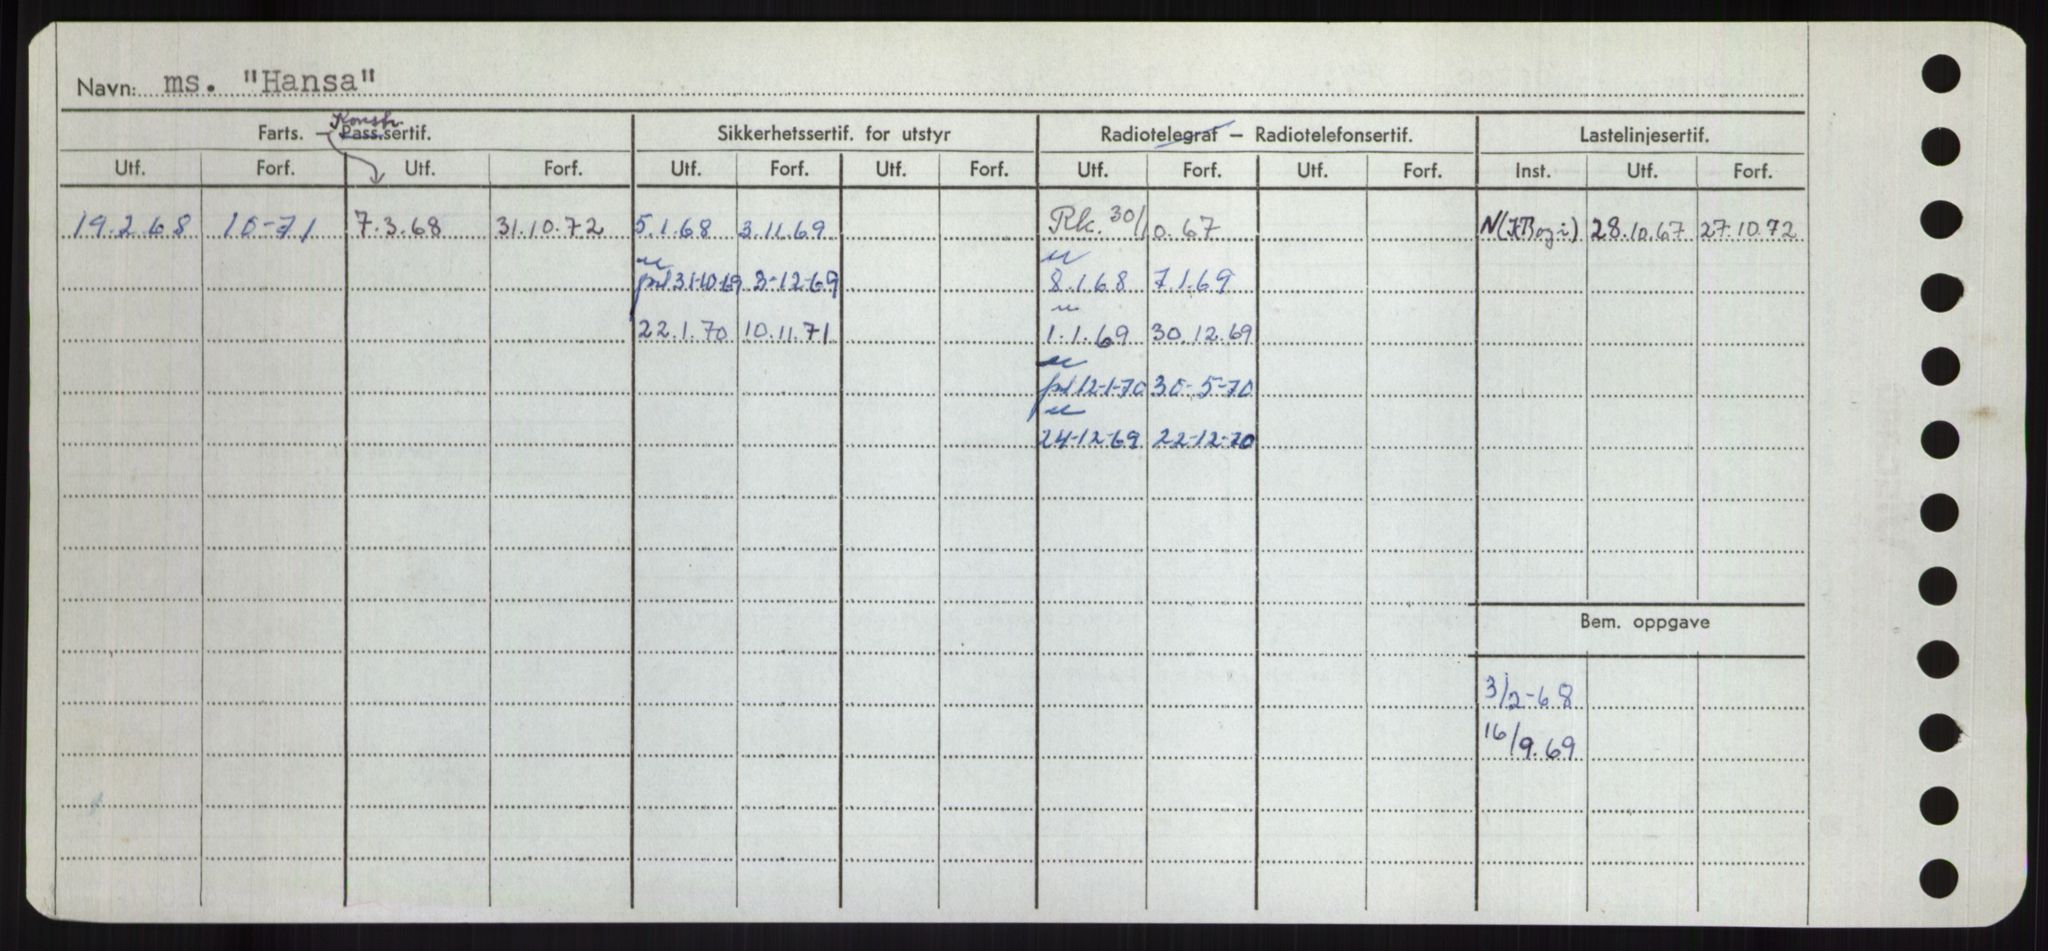 Navn: ms. "Hansa"
Konstr.
Farts. – Pass.sertif. Sikkerhetssertif. for utstyr Radiotelegraf – Radiotelefonsertif. Lastelinjesertif.
Utf. Forf. Utf. Forf. Utf. Forf. Utf. Forf. Utf. Forf. Utf. Forf. Inst. Utf. Forf.
19.2.68 10-71 7.3.68 31.10.72 5.1.68 3.11.69 Rk. 30/10.67 28.10.67 27.10.72
31-10-69 3-12-69 8.1.68 7.1.69
22.1.70 10.11.71 1.1.69 30.12.69
12-1-70 30-5-70
24-12-69 22-12-70
Bem. oppgave
3/2-68
16/9.69